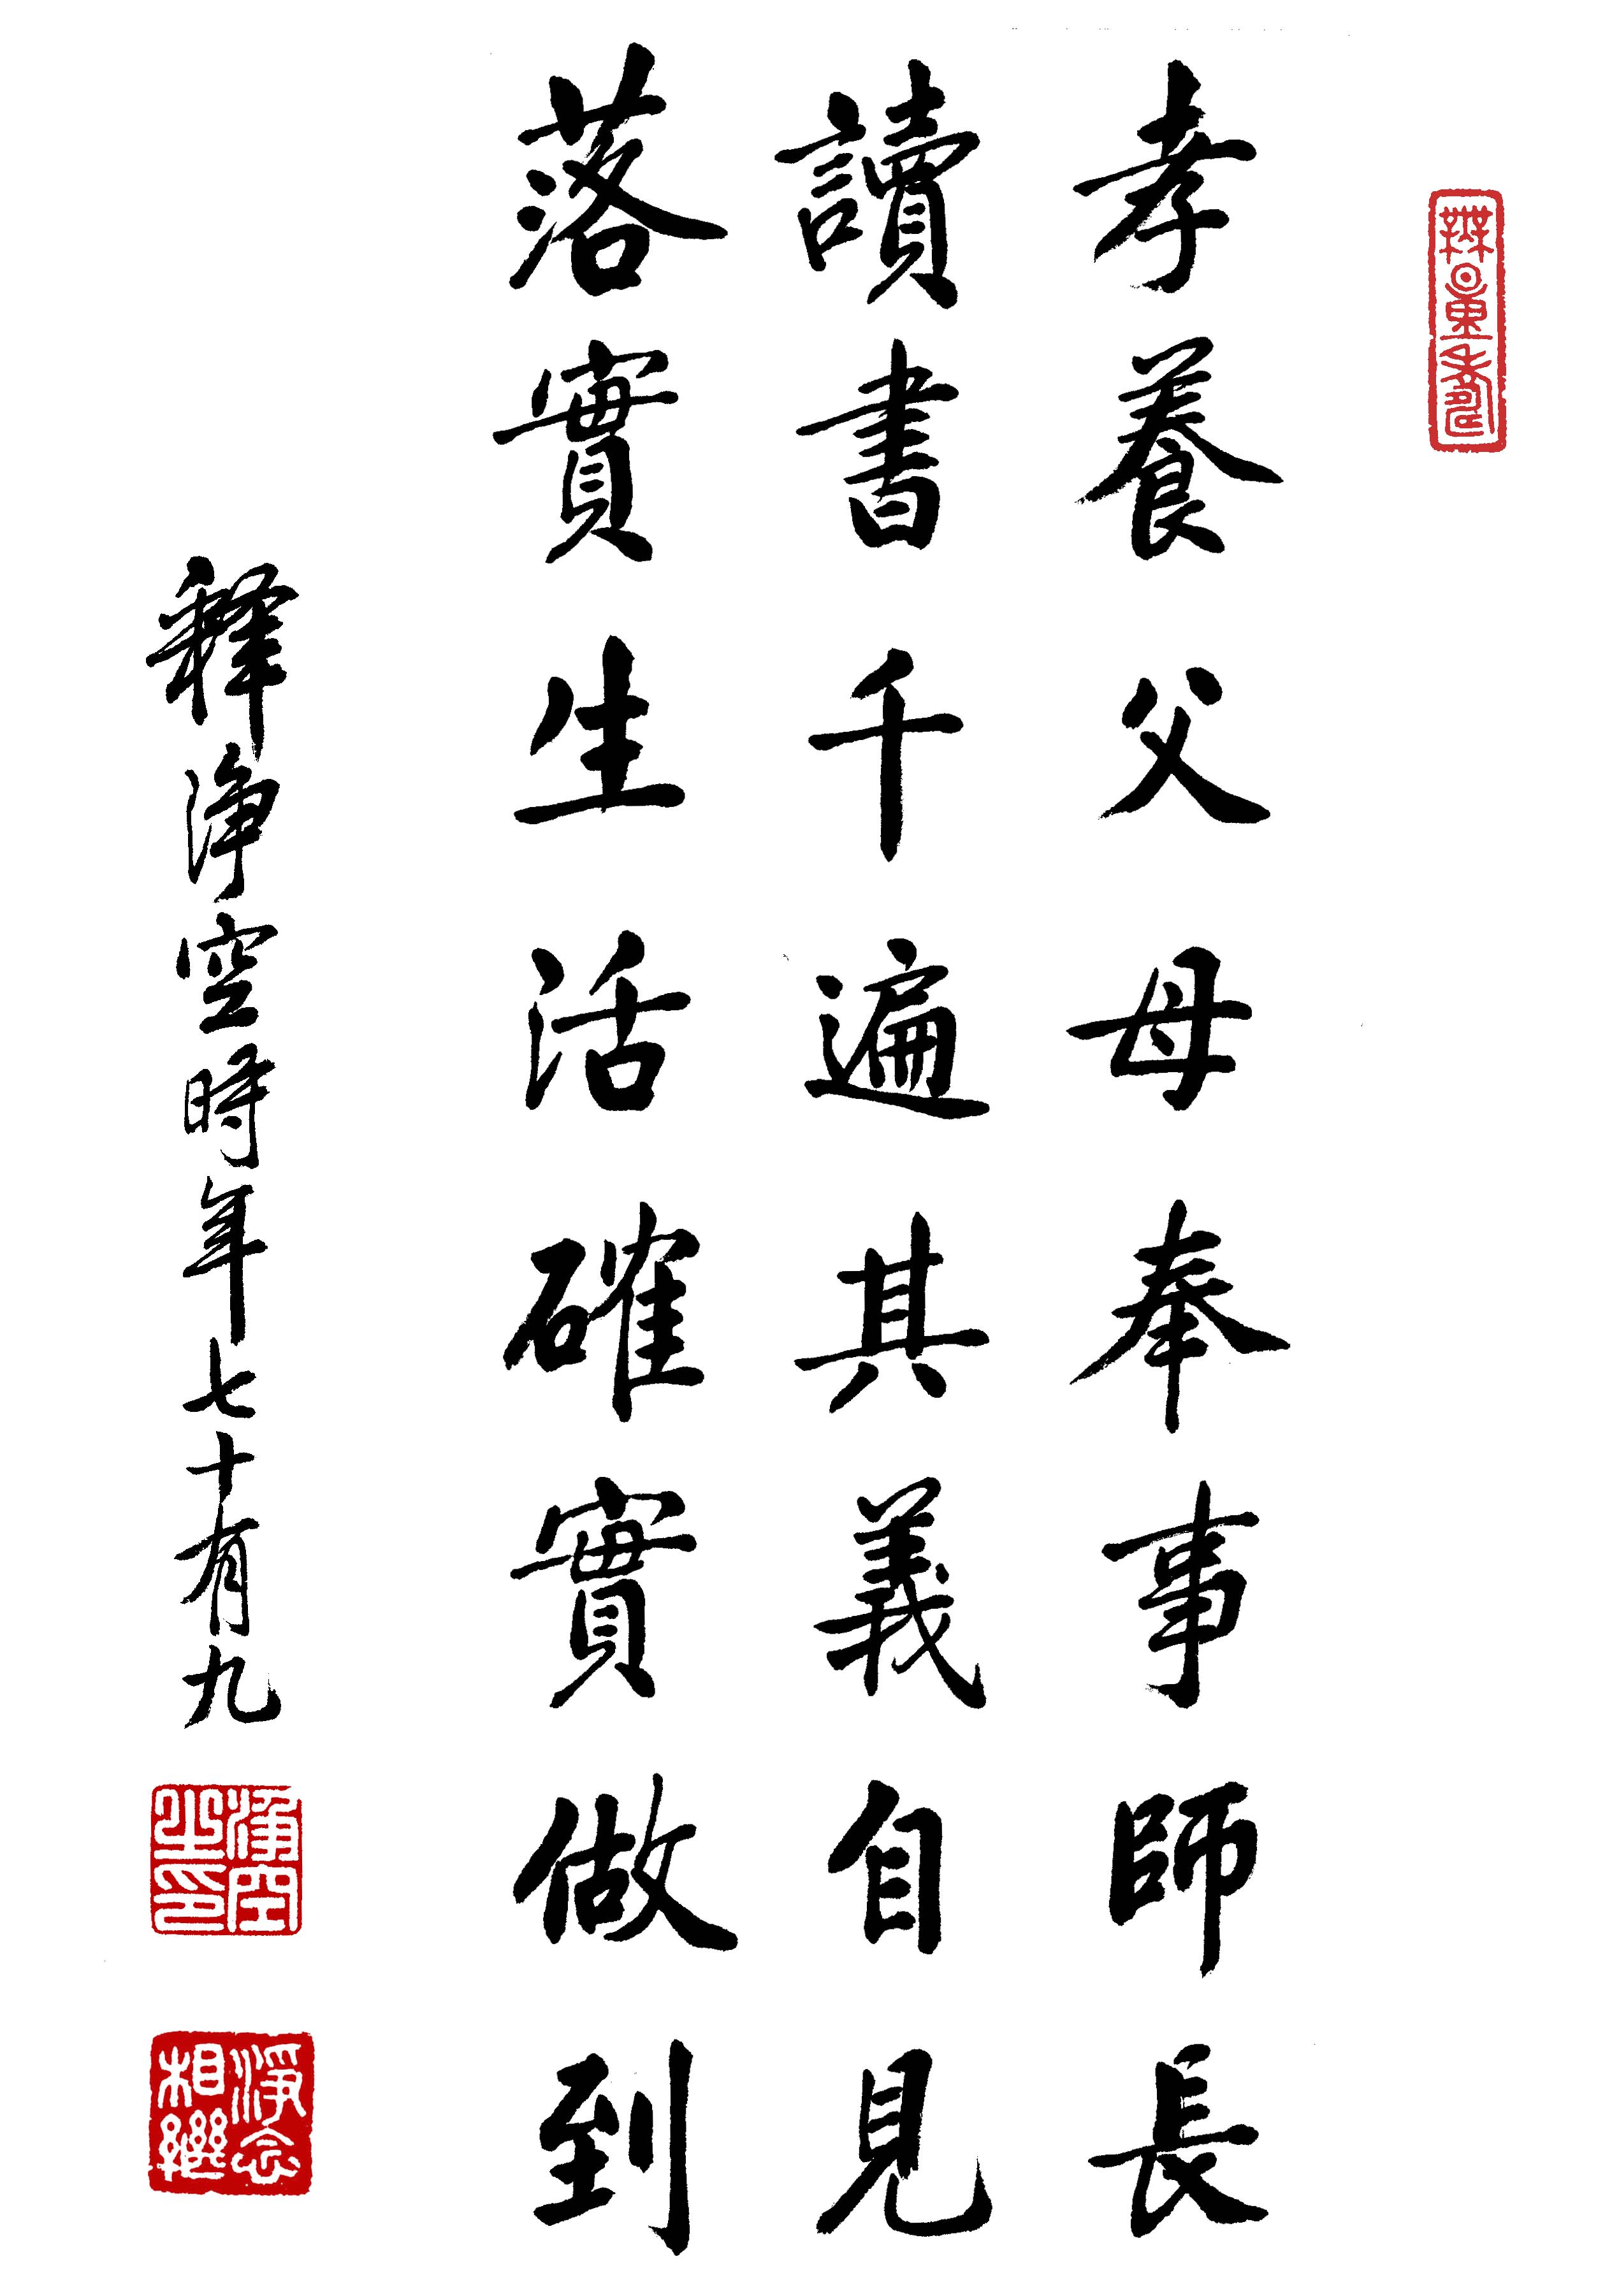 無量壽
孝養父母奉事師長
讀書千遍其義自見
落實生活確實做到
釋淨空時年七十有九
淨空之印
淨念相繼